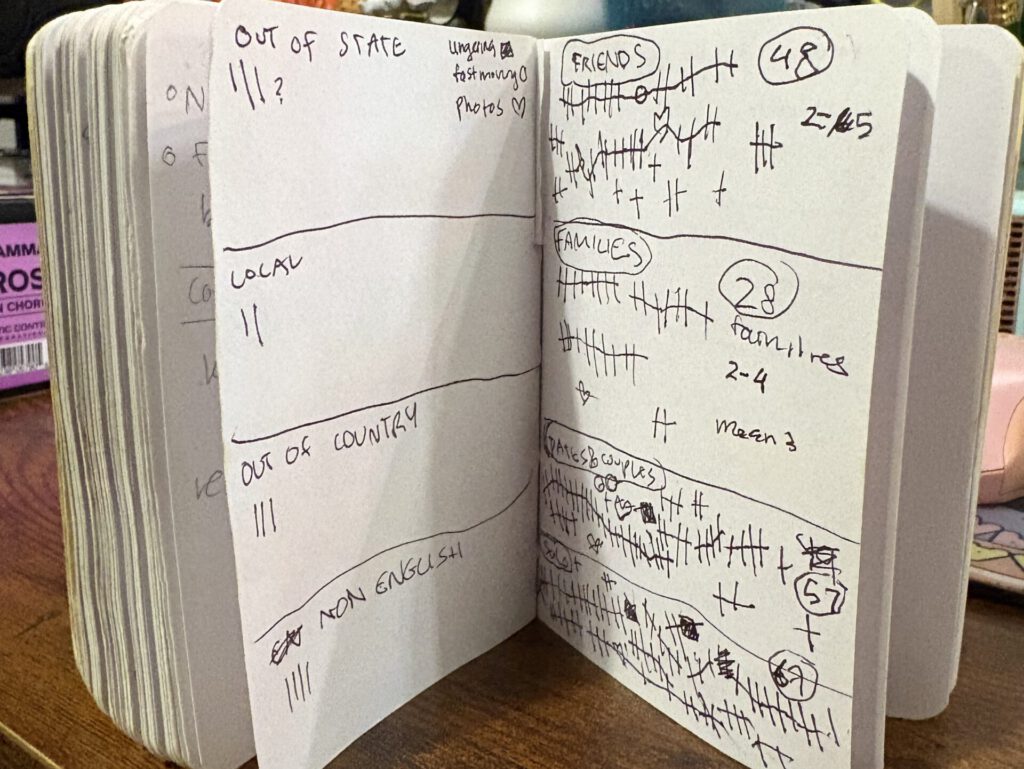 OUT OF STATE
lingering
fastmoving O
photos ♡
|||?
LOCAL
||
OUT OF COUNTRY
|||
NON ENGLISH
||||
FRIENDS
48
2-5
FAMILIES
28
families
2-4
mean 3
DATES & COUPLES
57
SOLO
69
ROS